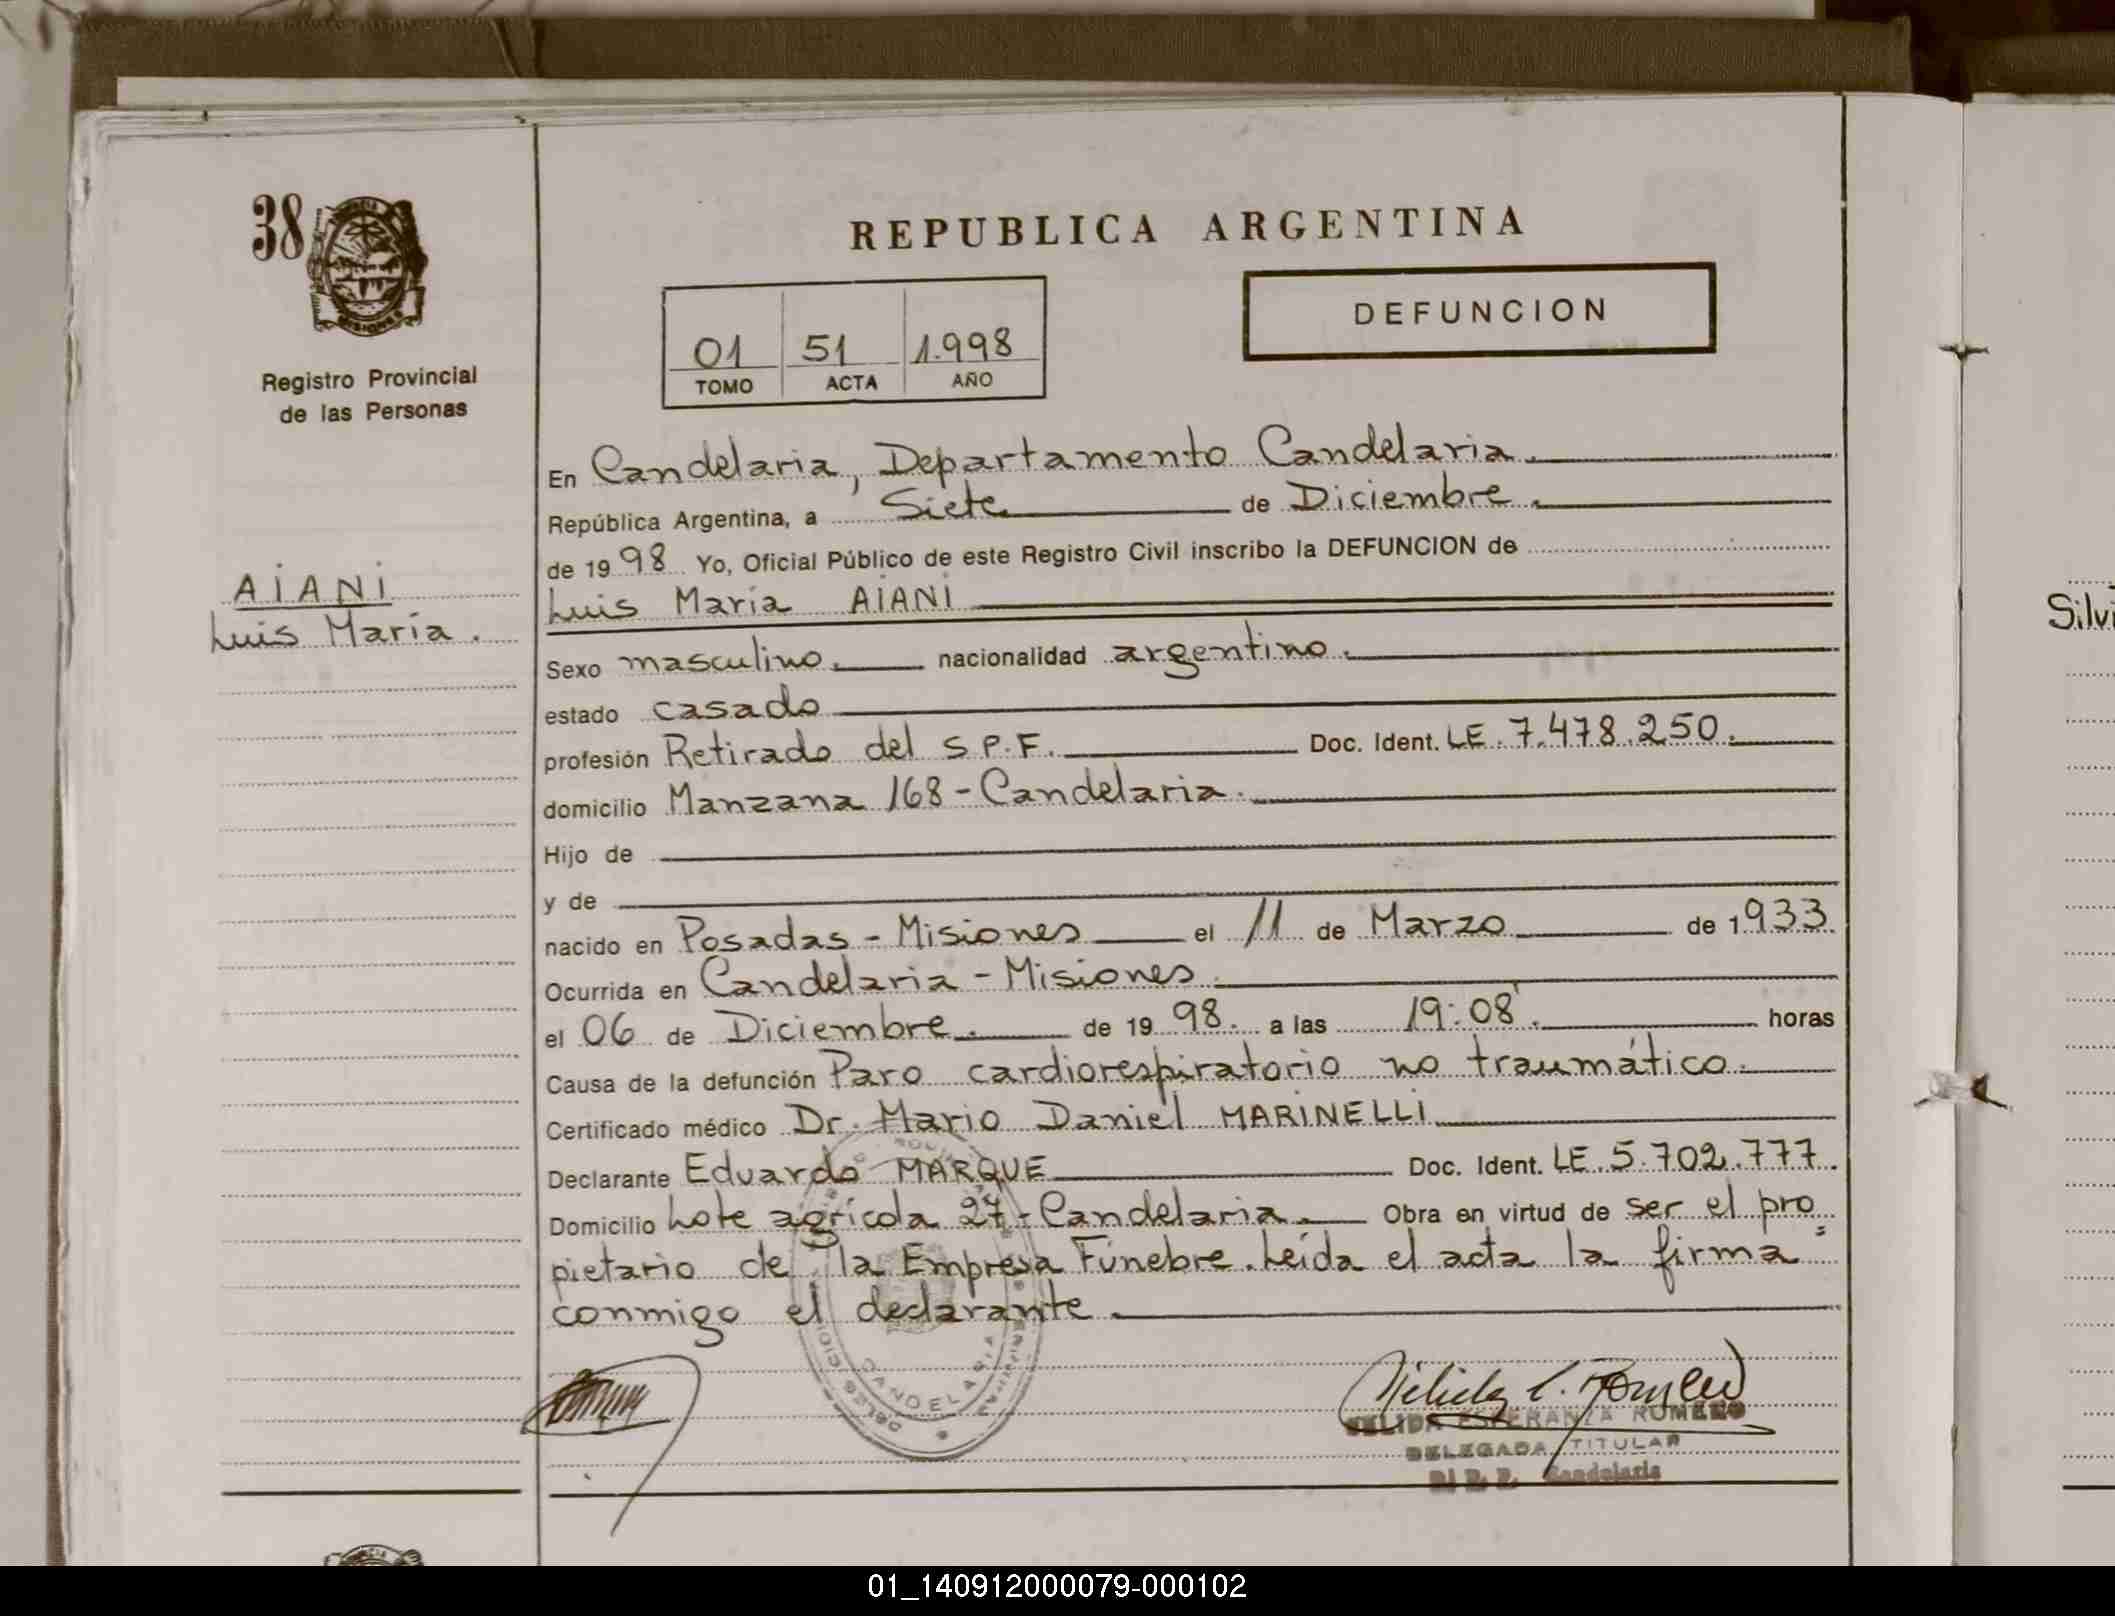 38
MISIONES
Registro Provincial
de las Personas
AIANI
Luis María.
REPUBLICA ARGENTINA
01 51 1.998
TOMO ACTA AÑO
DEFUNCION
En Candelaria, Departamento Candelaria.
República Argentina, a Siete de Diciembre.
de 1998 Yo, Oficial Público de este Registro Civil inscribo la DEFUNCION de
Luis María AIANI
Sexo masculino. nacionalidad argentino.
estado casado
profesión Retirado del S.P.F. Doc. Ident. LE. 7.478.250.
domicilio Manzana 168 - Candelaria.
Hijo de
y de
nacido en Posadas - Misiones el 11 de Marzo de 1933.
Ocurrida en Candelaria - Misiones.
el 06 de Diciembre. de 1998. a las 19:08'. horas
Causa de la defunción Paro cardiorespiratorio no traumático.
Certificado médico Dr. Mario Daniel MARINELLI
Declarante Eduardo MARQUE Doc. Ident. LE. 5.702.777.
Domicilio Lote agrícola 27 - Candelaria. Obra en virtud de ser el pro=
pietario de la Empresa Fúnebre. Leída el acta la firma
conmigo el declarante.
CANDELARIA
NELIDA ESPERANZA ROMERO
DELEGADA TITULAR
Candelaria
Silvi
01_140912000079-000102